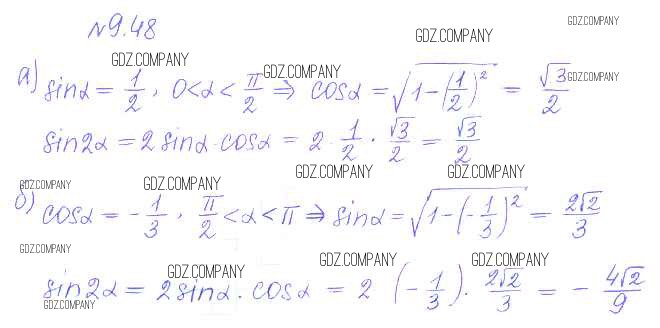 №9.48
GDZ.COMPANY
GDZ.COMPANY
GDZ.COMPANY
GDZ.COMPANY
GDZ.COMPANY
а) sinα = 1/2, 0<α<π/2 ⇒ cosα = √(1-(1/2)²) = √3/2
sin2α = 2 sinα · cosα = 2 · 1/2 · √3/2 = √3/2
GDZ.COMPANY
GDZ.COMPANY
GDZ.COMPANY
GDZ.COMPANY
б) cosα = -1/3, π/2<α<π ⇒ sinα = √(1-(-1/3)²) = 2√2/3
GDZ.COMPANY
GDZ.COMPANY
GDZ.COMPANY
GDZ.COMPANY
sin2α = 2sinα · cosα = 2 (-1/3) · 2√2/3 = - 4√2/9
GDZ.COMPANY